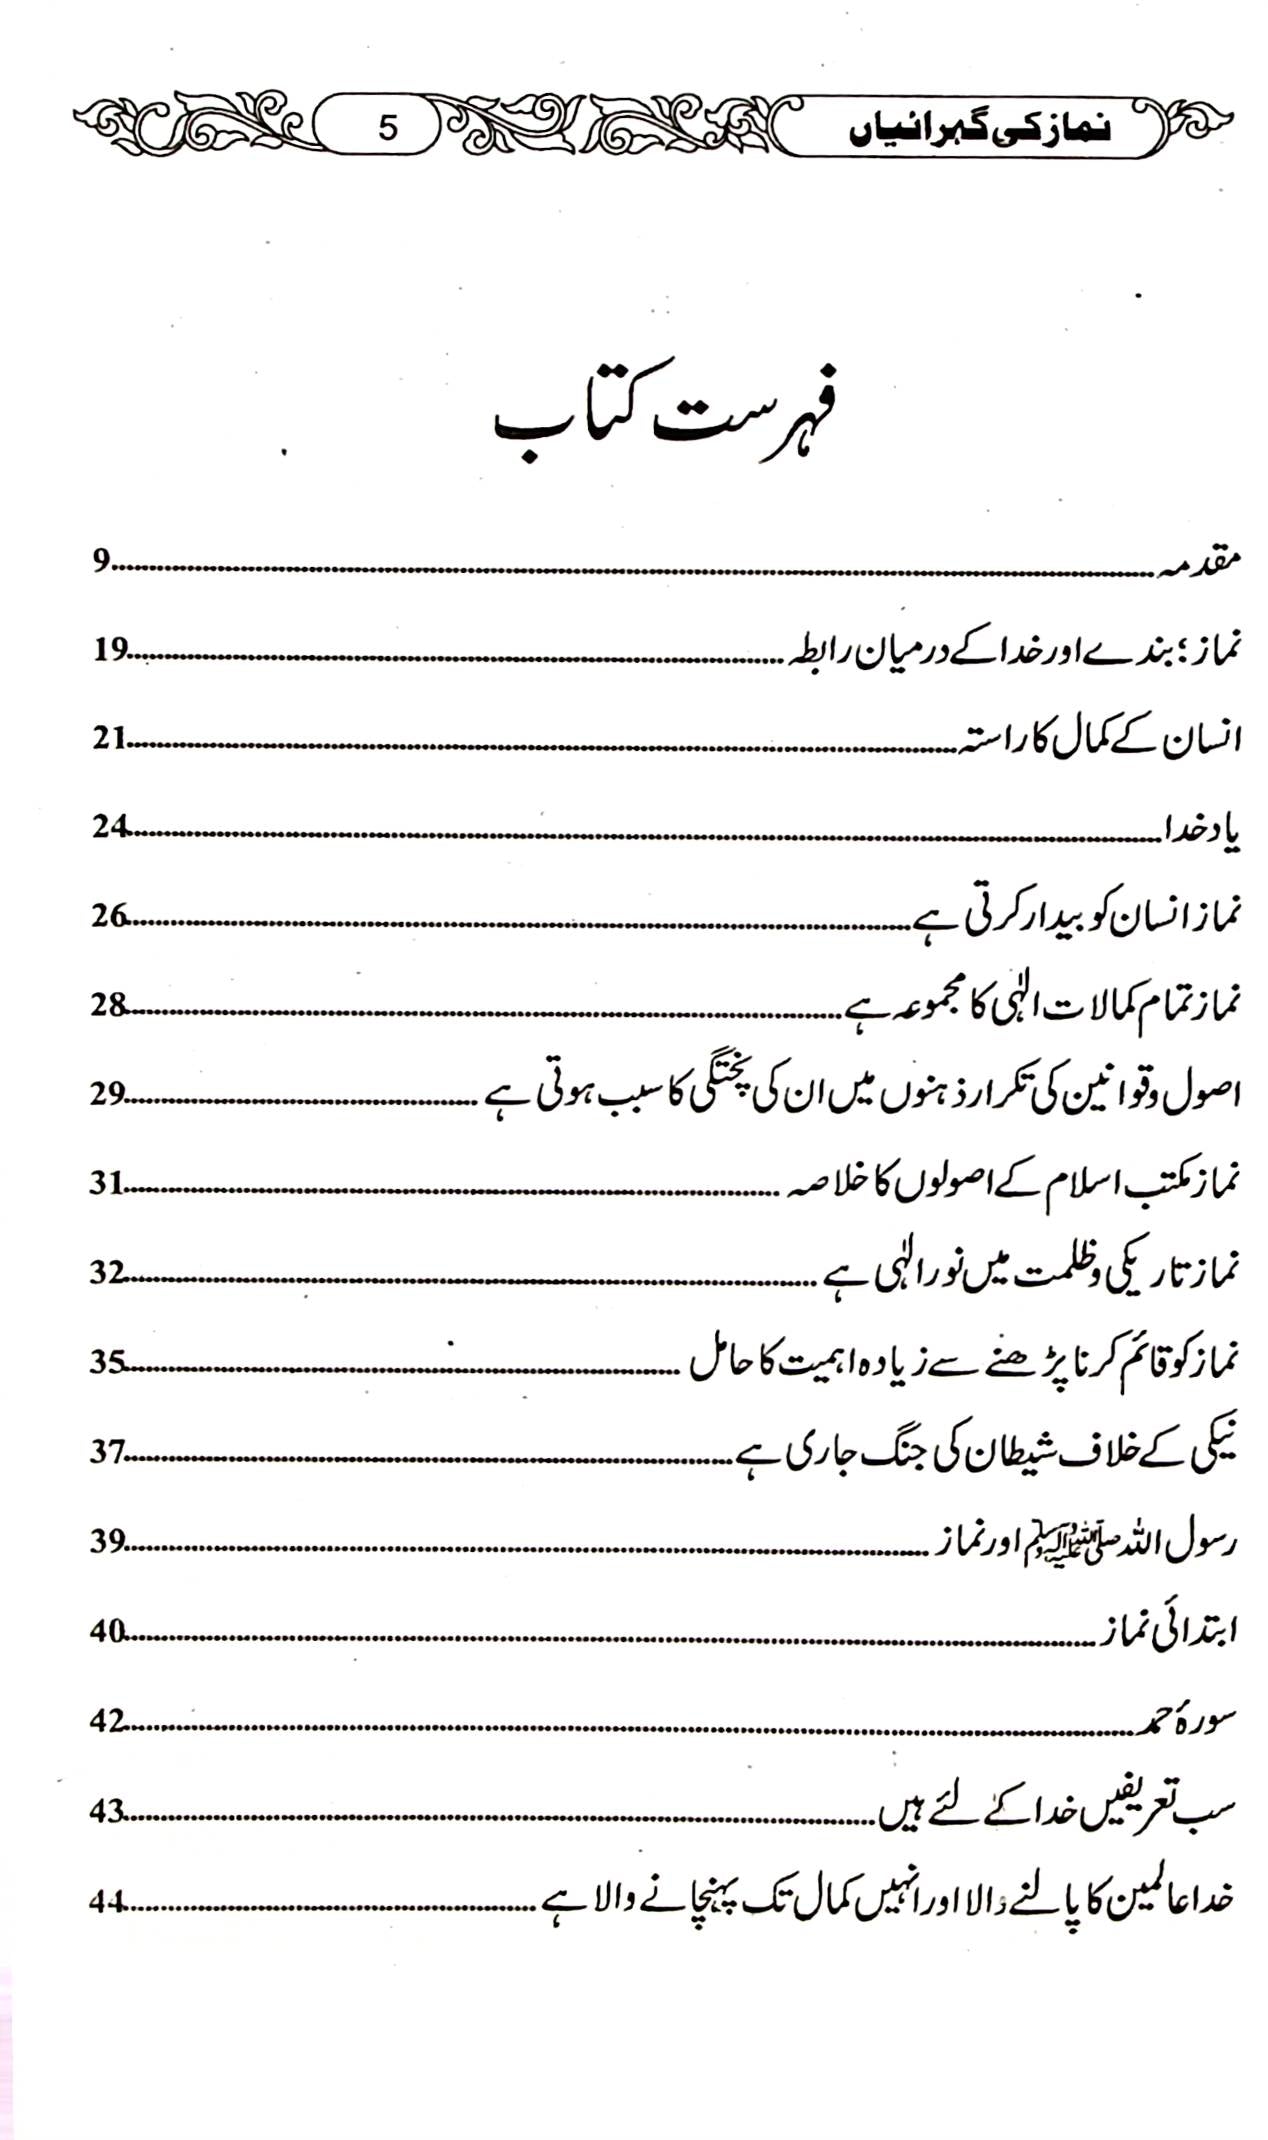 نماز کی گہرائیاں 5
فہرست کتاب
مقدمہ 9
نماز؛ بندے اور خدا کے درمیان رابطہ 19
انسان کے کمال کا راستہ 21
یاد خدا 24
نماز انسان کو بیدار کرتی ہے 26
نماز تمام کمالات الٰہی کا مجموعہ ہے 28
اصول و قوانین کی تکرار ذہنوں میں ان کی پختگی کا سبب ہوتی ہے 29
نماز مکتب اسلام کے اصولوں کا خلاصہ 31
نماز تاریکی و ظلمت میں نور الٰہی ہے 32
نماز کو قائم کرنا پڑھنے سے زیادہ اہمیت کا حامل 35
نیکی کے خلاف شیطان کی جنگ جاری ہے 37
رسول اللہ ﷺ اور نماز 39
ابتدائی نماز 40
سورۂ حمد 42
سب تعریفیں خدا کے لئے ہیں 43
خدا عالمین کا پالنے والا اور انہیں کمال تک پہنچانے والا ہے 44